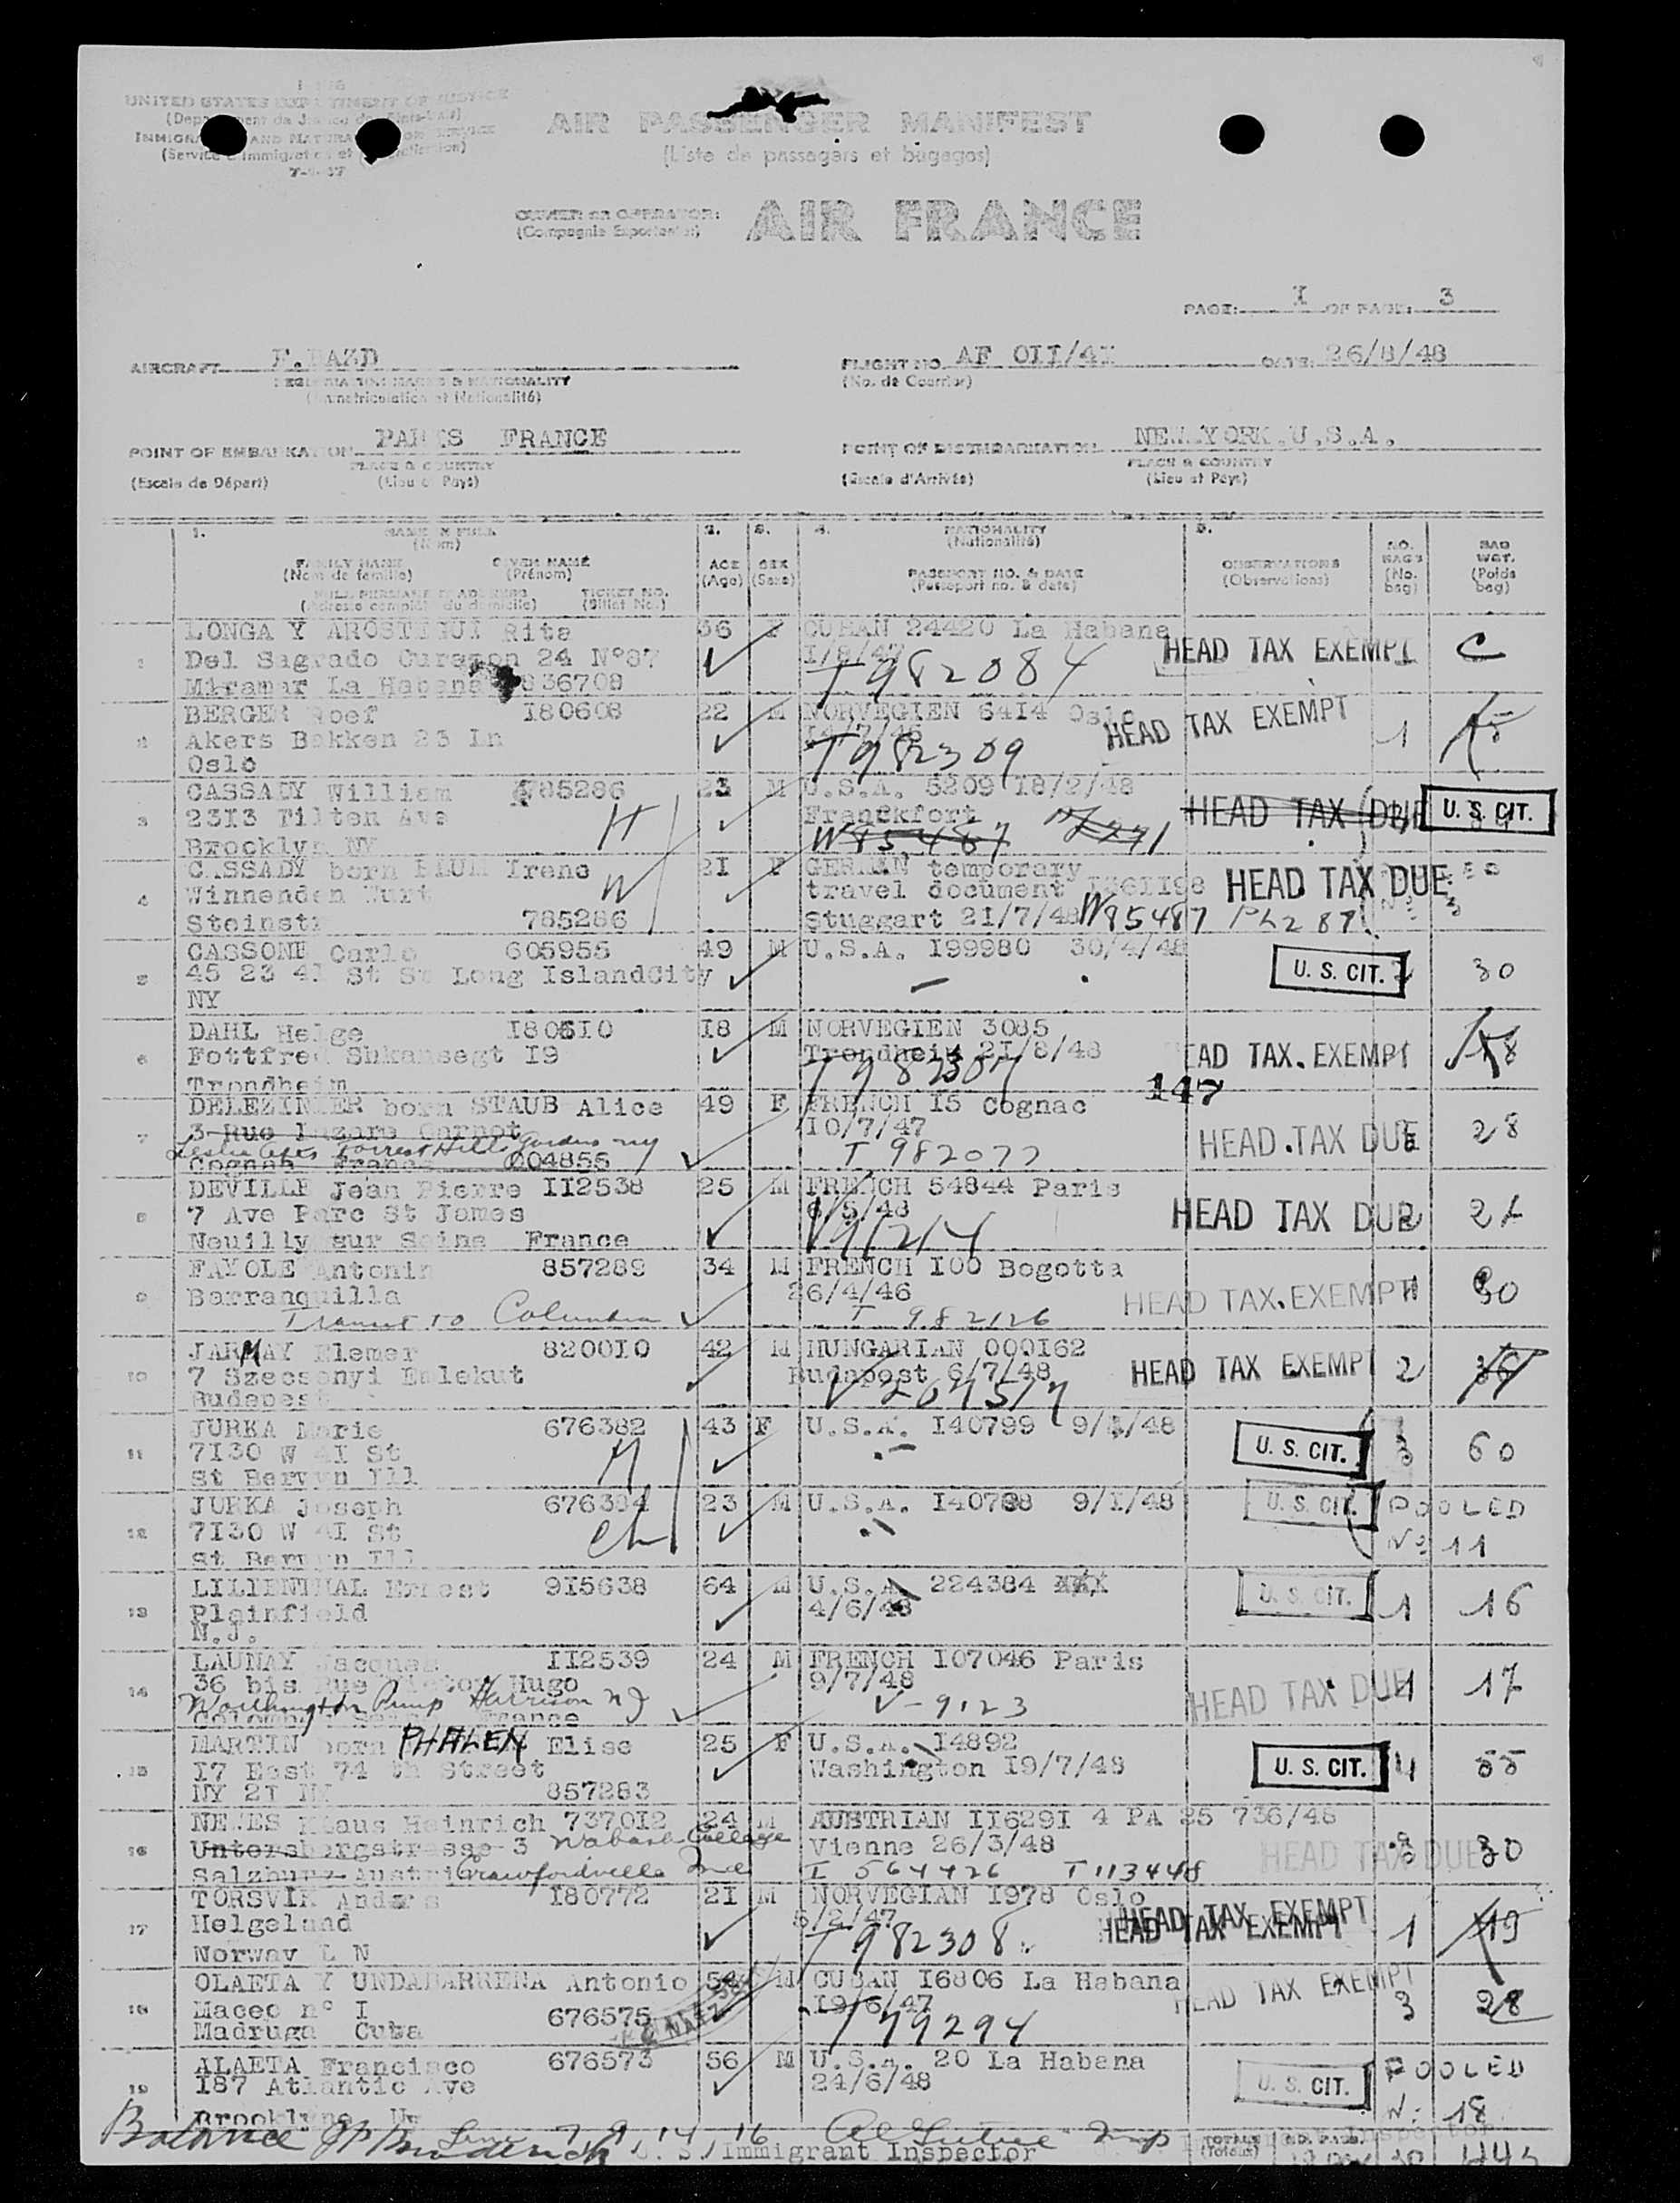 UNITED STATES DEPARTMENT OF JUSTICE
7-1-47
AIR PASSENGER MANIFEST
(Liste de passagers et bagages)
OWNER OR OPERATOR:
(Compagnie Exportation)
AIR FRANCE
PAGE: I OF PAGE: 3
AIRCRAFT F.BAZD
FLIGHT NO. AF OII/4I DATE: 26/8/48
(No. de Courrier)
(Immatriculation et Nationalité)
POINT OF EMBARKATION PARIS FRANCE
POINT OF DISEMBARKATION NEW.YORK.U.S.A.
PLACE & COUNTRY
PLACE & COUNTRY
(Escale de Départ) (Lieu et Pays)
(Escale d'Arrivée) (Lieu et Pays)
1. NAME IN FULL 2. 3. 4. NATIONALITY 5.
(Nom) (Nationalité)
FAMILY NAME GIVEN NAME AGE SEX OBSERVATIONS NO. BAGS BAG WGT.
(Nom de famille) (Prénom) (Age) (Sexe) PASSPORT NO. & DATE (Observations) (No. bag) (Poids bag)
(Passeport no. & date)
FULL PERMANENT ADDRESS TICKET NO.
(Adresse complète du domicile) (Billet No.)
1 LONGA Y AROSTEGUI Rita 36 F CUBAN 24420 La Habana
Del Sagrado 24 N°37 I/8/47 HEAD TAX EXEMPT C
Miramar La Habana 836708 T982084
2 BERGER Roef I80608 22 M NORVEGIEN 6414 Oslo
Akers Bakken 23 In HEAD TAX EXEMPT 1 15
Oslo T982309
3 CASSADY William 785286 23 M U.S.A. 5209 I8/2/48
23I3 Tilten Ave H Franckfort HEAD TAX DUE U. S. CIT.
Brooklyn NY W85487
4 CASSADY born BLUM Irene 2I F GERMAN temporary
Winnenden Wurt W travel document HEAD TAX DUE
Steinstr 785286 Stuggart 2I/7/48 W85487
5 CASSONE Carlo 605955 49 M U.S.A. I99980 30/4/48
45 23 4I St St Long IslandCity U. S. CIT. 2 30
NY
6 DAHL Helge I80610 I8 M NORVEGIEN 3085
Fottfred Shkansegt I9 Trondheim 2I/8/48 HEAD TAX EXEMPT 18
Trondheim
147
7 DELEZINIER born STAUB Alice 49 F FRENCH I5 Cognac
3 Rue Lazare Carnot I0/7/47 HEAD TAX DUE 28
Leslie Apts Forrest Hills Gardens ny
Cognac France 604855 T 982077
8 DEVILLE Jean Pierre II2538 25 M FRENCH 54844 Paris
7 Ave Parc St James 6/5/48 HEAD TAX DUE
Neuilly sur Seine France V91214
9 FAYOLE Antonin 857289 34 M FRENCH I00 Bogotta
Barranquilla 26/4/46 HEAD TAX EXEMPT 30
Transit to Columbia T 982126
10 JARMAY Elemer 820010 42 M HUNGARIAN 000I62
7 Szecsenyi Emlekut Budapest 6/7/48 HEAD TAX EXEMPT 2
Budapest
11 JURKA Marie 676382 43 F U.S.A. I40799 9/I/48
7I30 W 4I St U. S. CIT. 3 60
St Berwyn Ill
12 JURKA Joseph 676384 23 M U.S.A. 9/I/48 U. S. CIT. POOLED
7I30 W 4I St No 11
St Berwyn Ill
13 LILIENTHAL Ernest 9I5638 64 M U.S.A. 224384
Plainfield 4/6/48 U. S. CIT. 1 16
N.J.
14 LAUNAY Jacques II2539 24 M FRENCH I07046 Paris
36 bis Rue Victor Hugo 9/7/48 HEAD TAX DUE 1 17
Worthington Pump Harrison NJ V-9123
15 MARTIN born PHALEN Elise 25 F U.S.A. I4892
I7 East 74 th Street Washington I9/7/48 U. S. CIT. 4 55
NY 2I NY 857283
16 NEMES Klaus Heinrich 737012 24 M AUSTRIAN II629I 4 PA 25 736/48
Untersbergstrasse 3 Wabash College Vienne 26/3/48 HEAD TAX DUE 30
Salzburg Austria Crawfordville Ind I 564426 T113448
17 TORSVIK Anders I80772 2I M NORVEGIAN I978 Oslo
Helgeland 5/2/47 HEAD TAX EXEMPT HEAD TAX EXEMPT 1 19
Norway L N T982308
18 OLAETA Y UNDABARRENA Antonio 54 M CUBAN I6806 La Habana
Maceo n° I 676575 I9/6/47 HEAD TAX EXEMPT 3 28
Madruga Cuba
19 ALAETA Francisco 676573 56 M U.S.A. 20 La Habana POOLED
I87 Atlantic Ave 24/6/48 U. S. CIT.
Brooklyne No 18
Balance Line 7, 9, 14, 16
U. S. Immigrant Inspector
TOTALS (Totaux) NO. PASS.